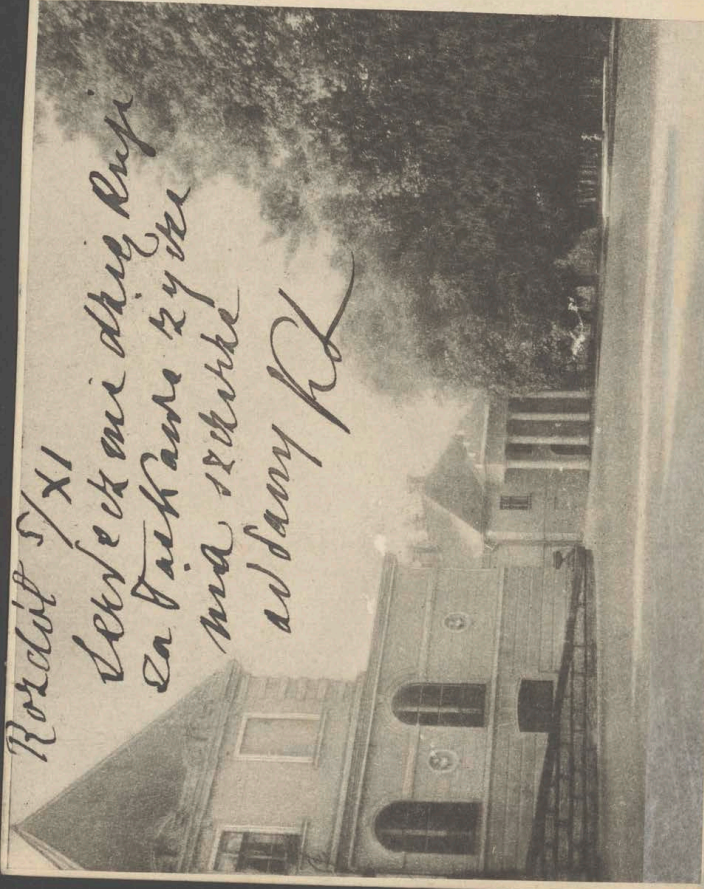 Rozdół 5/XI
Serdecznie dziękuję
za łaskawe życze
nia szczerze
oddany KL